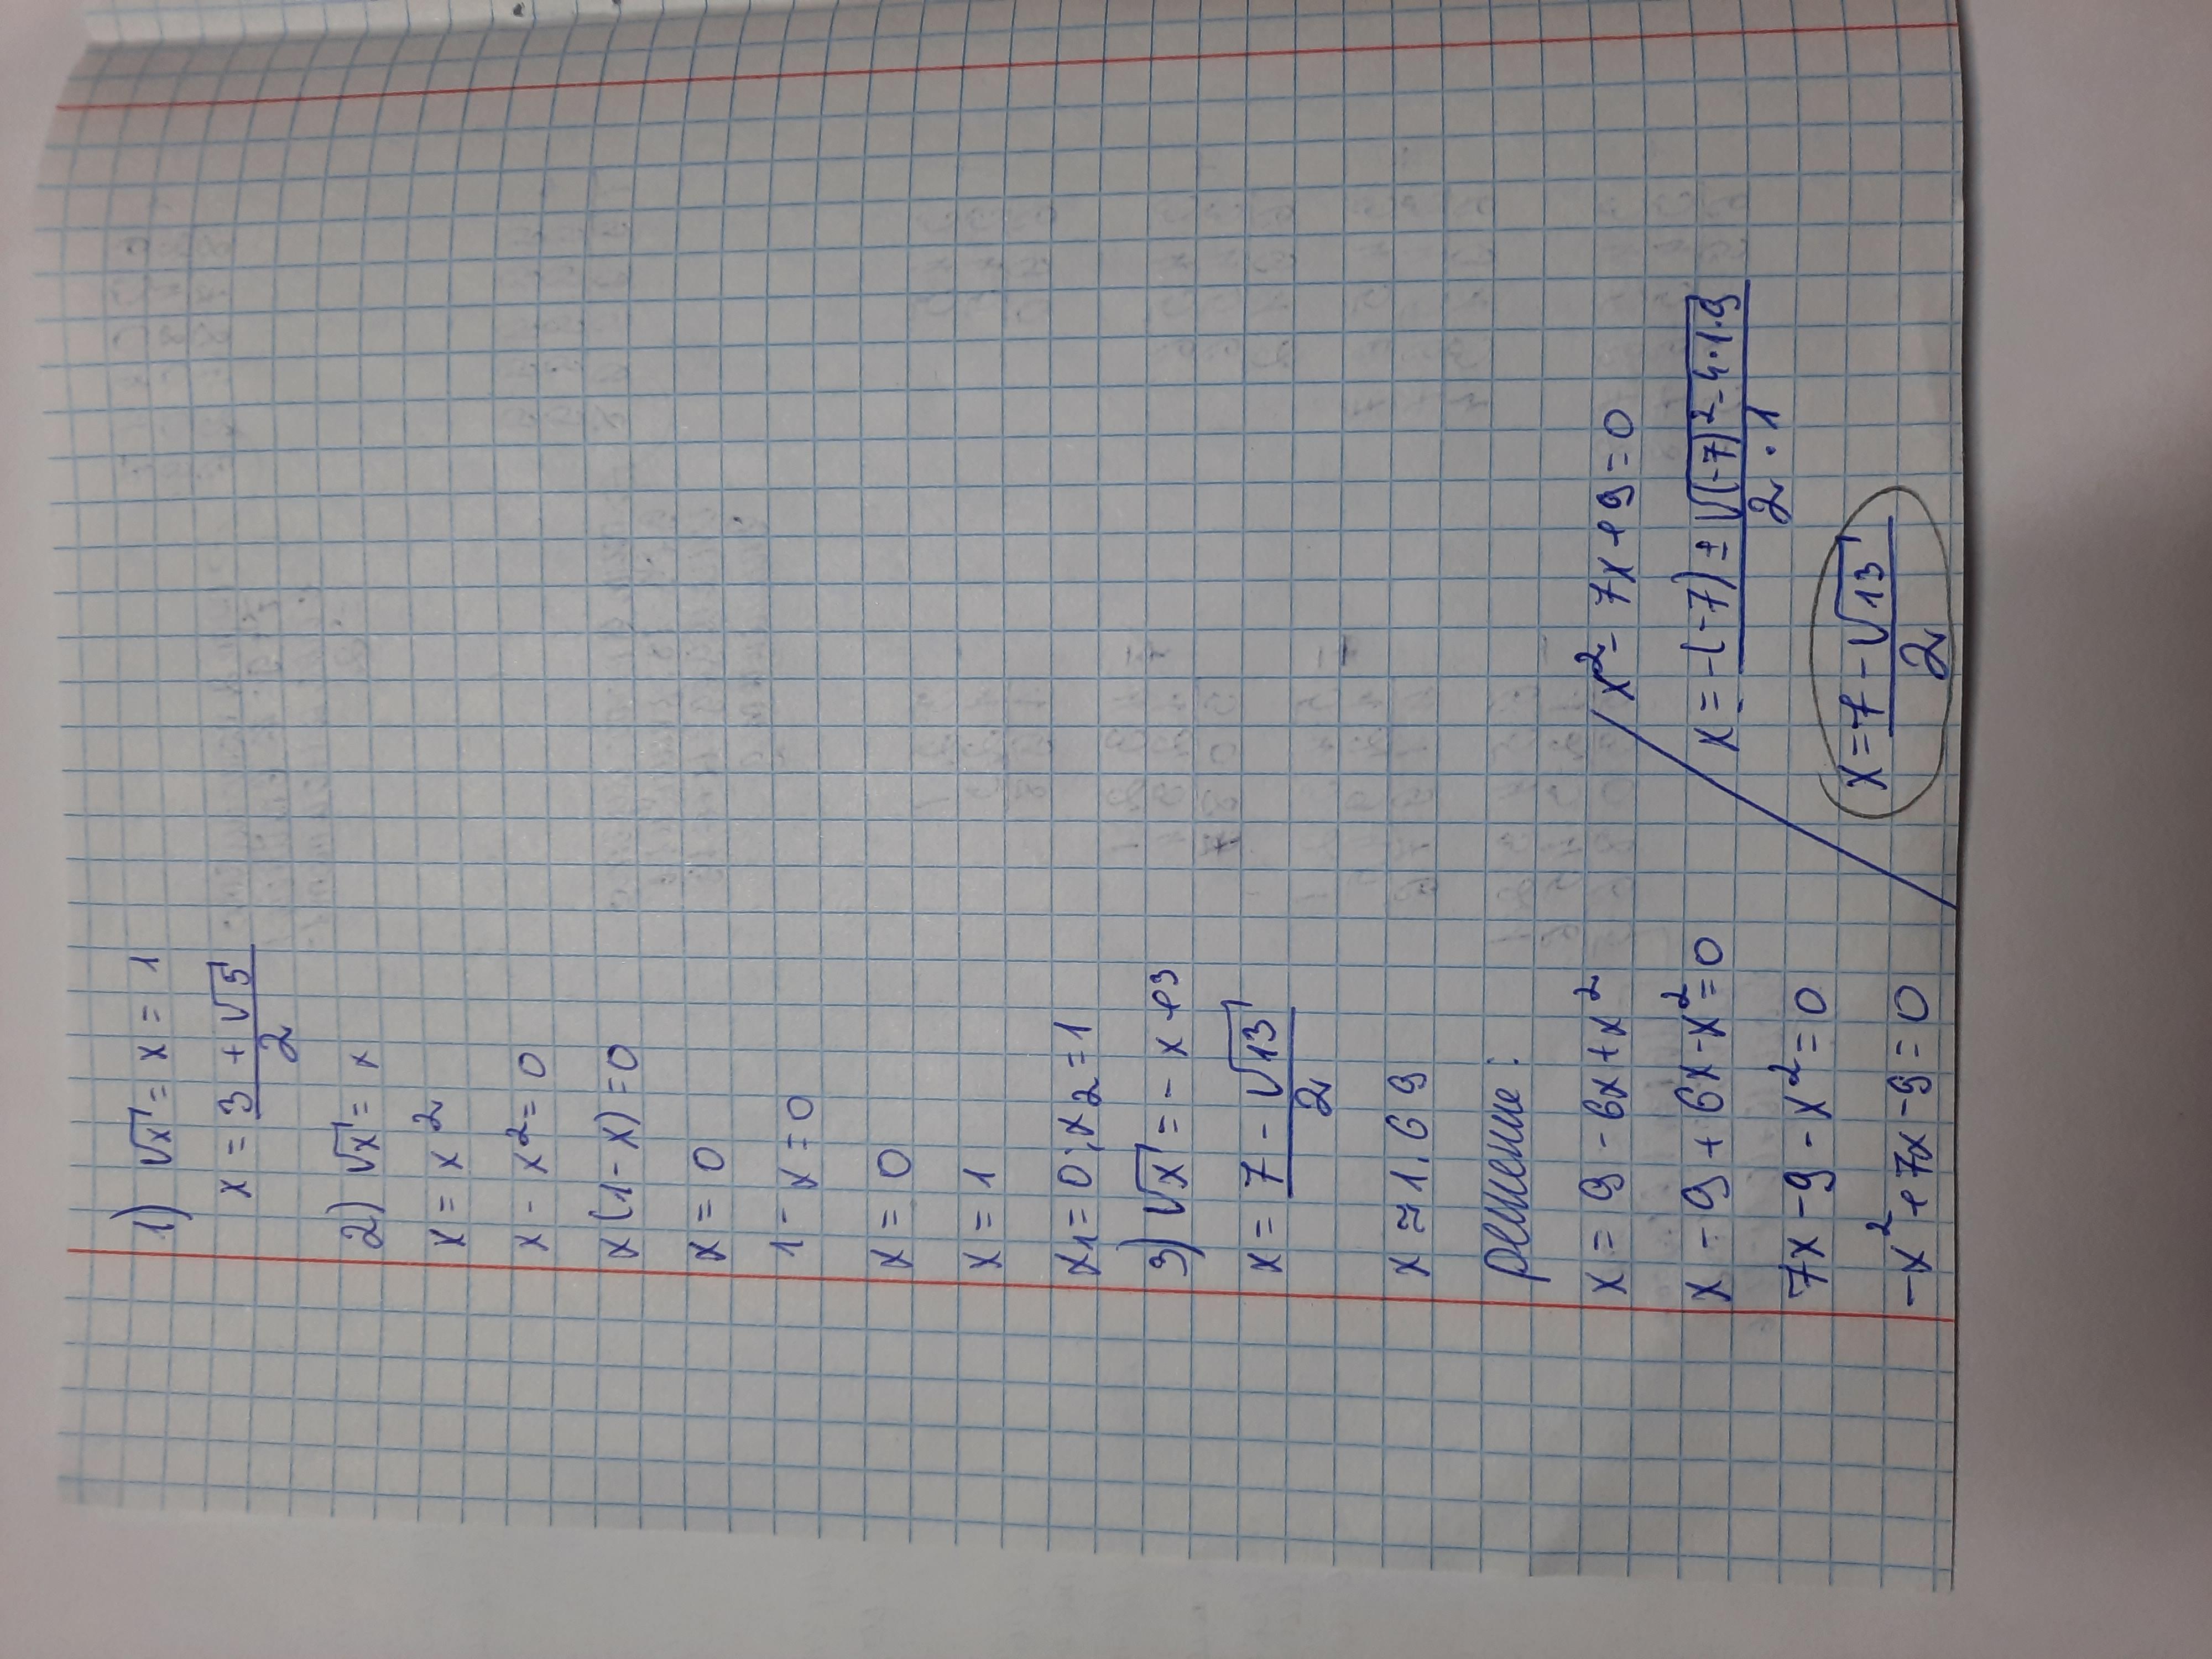 1) √x = x = 1
x = (3 + √5)/2
2) √x = x
x = x²
x - x² = 0
x(1-x) = 0
x = 0
1 - x = 0
x = 0
x = 1
x₁ = 0; x₂ = 1
3) √x = - x + 3
x = (7 - √13)/2
x ≈ 1.69
решение:
x = 9 - 6x + x²
x - 9 + 6x - x² = 0
7x - 9 - x² = 0
-x² + 7x - 9 = 0
x² - 7x + 9 = 0
x = (-(-7) ± √((-7)² - 4·1·9))/(2·1)
x = (7 - √13)/2